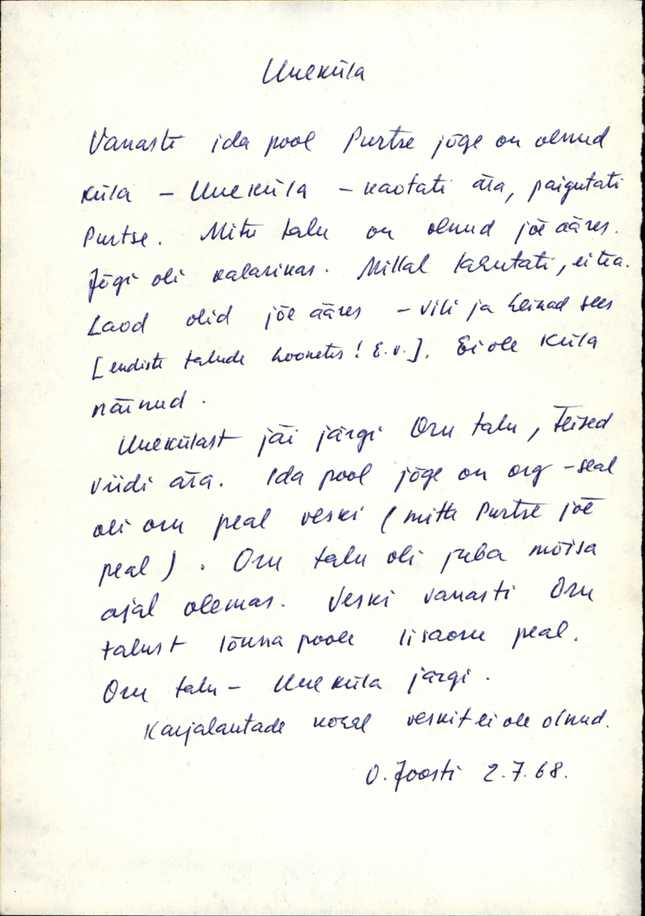 Uueküla
Vanasti ida pool Purtse jõge on olnud
küla – Uueküla – kaotati ära, paigutati
Purtse. Mitu talu on olnud jõe ääres.
Jõgi oli kalarikas. Millal kahutati, ei tea.
Laod olid jõe ääres – vili ja heinad sees
[endiste talude hoonetes! E.V.]. Ei ole küla
näinud.
Uuekülast jäi järgi Oru talu, teised
viidi ära. Ida pool jõge on org – seal
oli oru peal veski (mitte Purtse jõe
peal). Oru talu oli juba mõisa
ajal olemas. Veski vanasti Oru
talust lõuna poole lisaoru peal.
Oru talu – Uueküla järgi.
Karjalautade kohal veskit ei ole olnud.
O. Joosti 2.7.68.